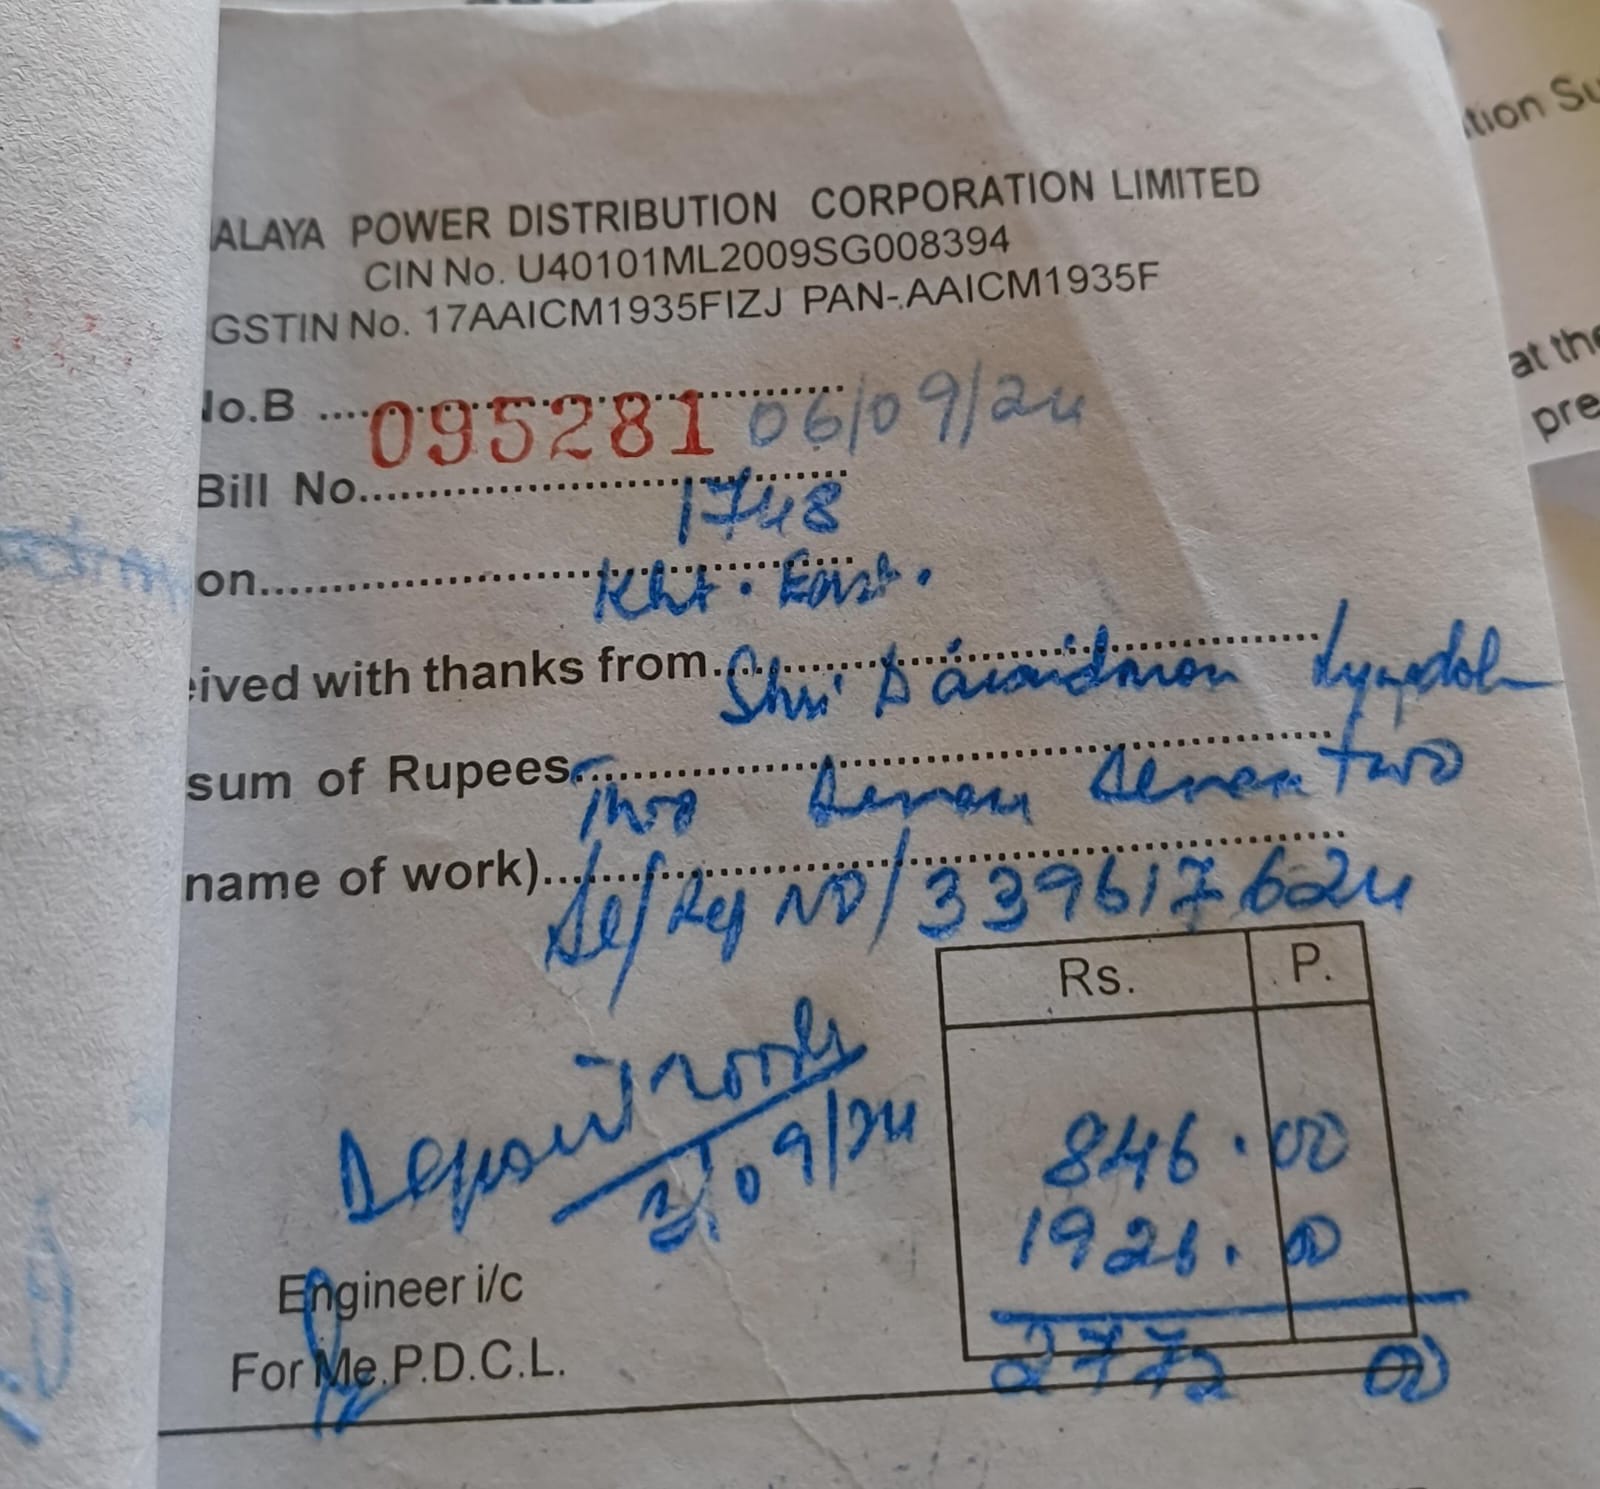 tion Su
ALAYA POWER DISTRIBUTION CORPORATION LIMITED
CIN No. U40101ML2009SG008394
GSTIN No. 17AAICM1935FIZJ PAN-.AAICM1935F
at the
pre
No.B .... 095281 06/09/24
Bill No. 1748
on.... Kht. East.
eived with thanks from. Shri Lyngdoh
sum of Rupees. Two Seven Seven two
name of work).... Se/Reg NO/339617624
Rs. P.
Deposit work
09/24
846.00
1926.00
Engineer i/c
For Me.P.D.C.L.
2772 00